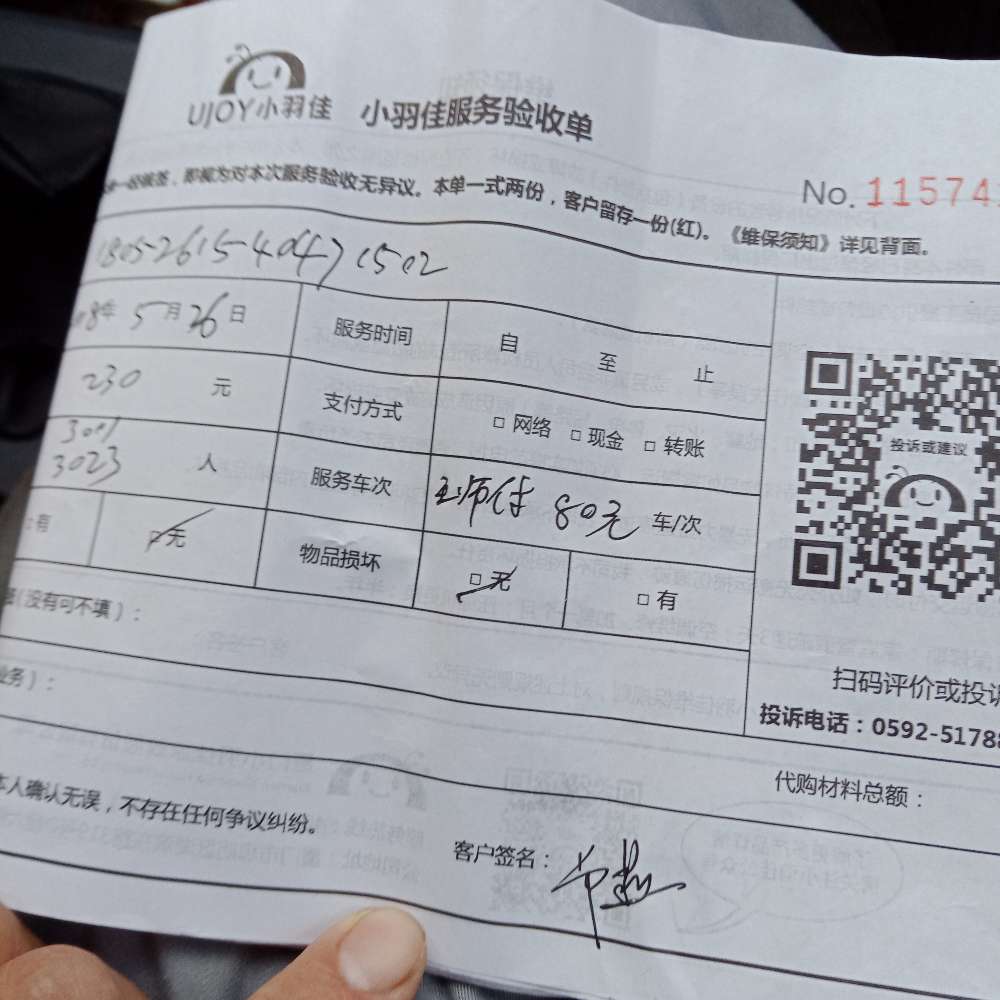 UJOY小羽佳 小羽佳服务验收单
No. 11574
签，即视为对本次服务验收无异议。本单一式两份，客户留存一份(红)。《维保须知》详见背面。
1805-2615-40471502
8年 5月26日 服务时间 自 至 止
230 元 支付方式 □ 网络 □ 现金 □ 转账
3001
3023 人 服务车次 王师付 80元 车/次
□有 □无 物品损坏 □ 无 □ 有
(没有可不填)：
业务)：
投诉或建议
扫码评价或投诉
投诉电话：0592-5178
代购材料总额：
本人确认无误，不存在任何争议纠纷。
客户签名：